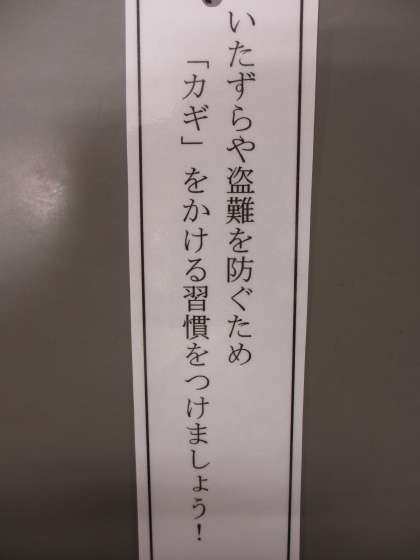 いたずらや盗難を防ぐため
「カギ」をかける習慣をつけましょう！